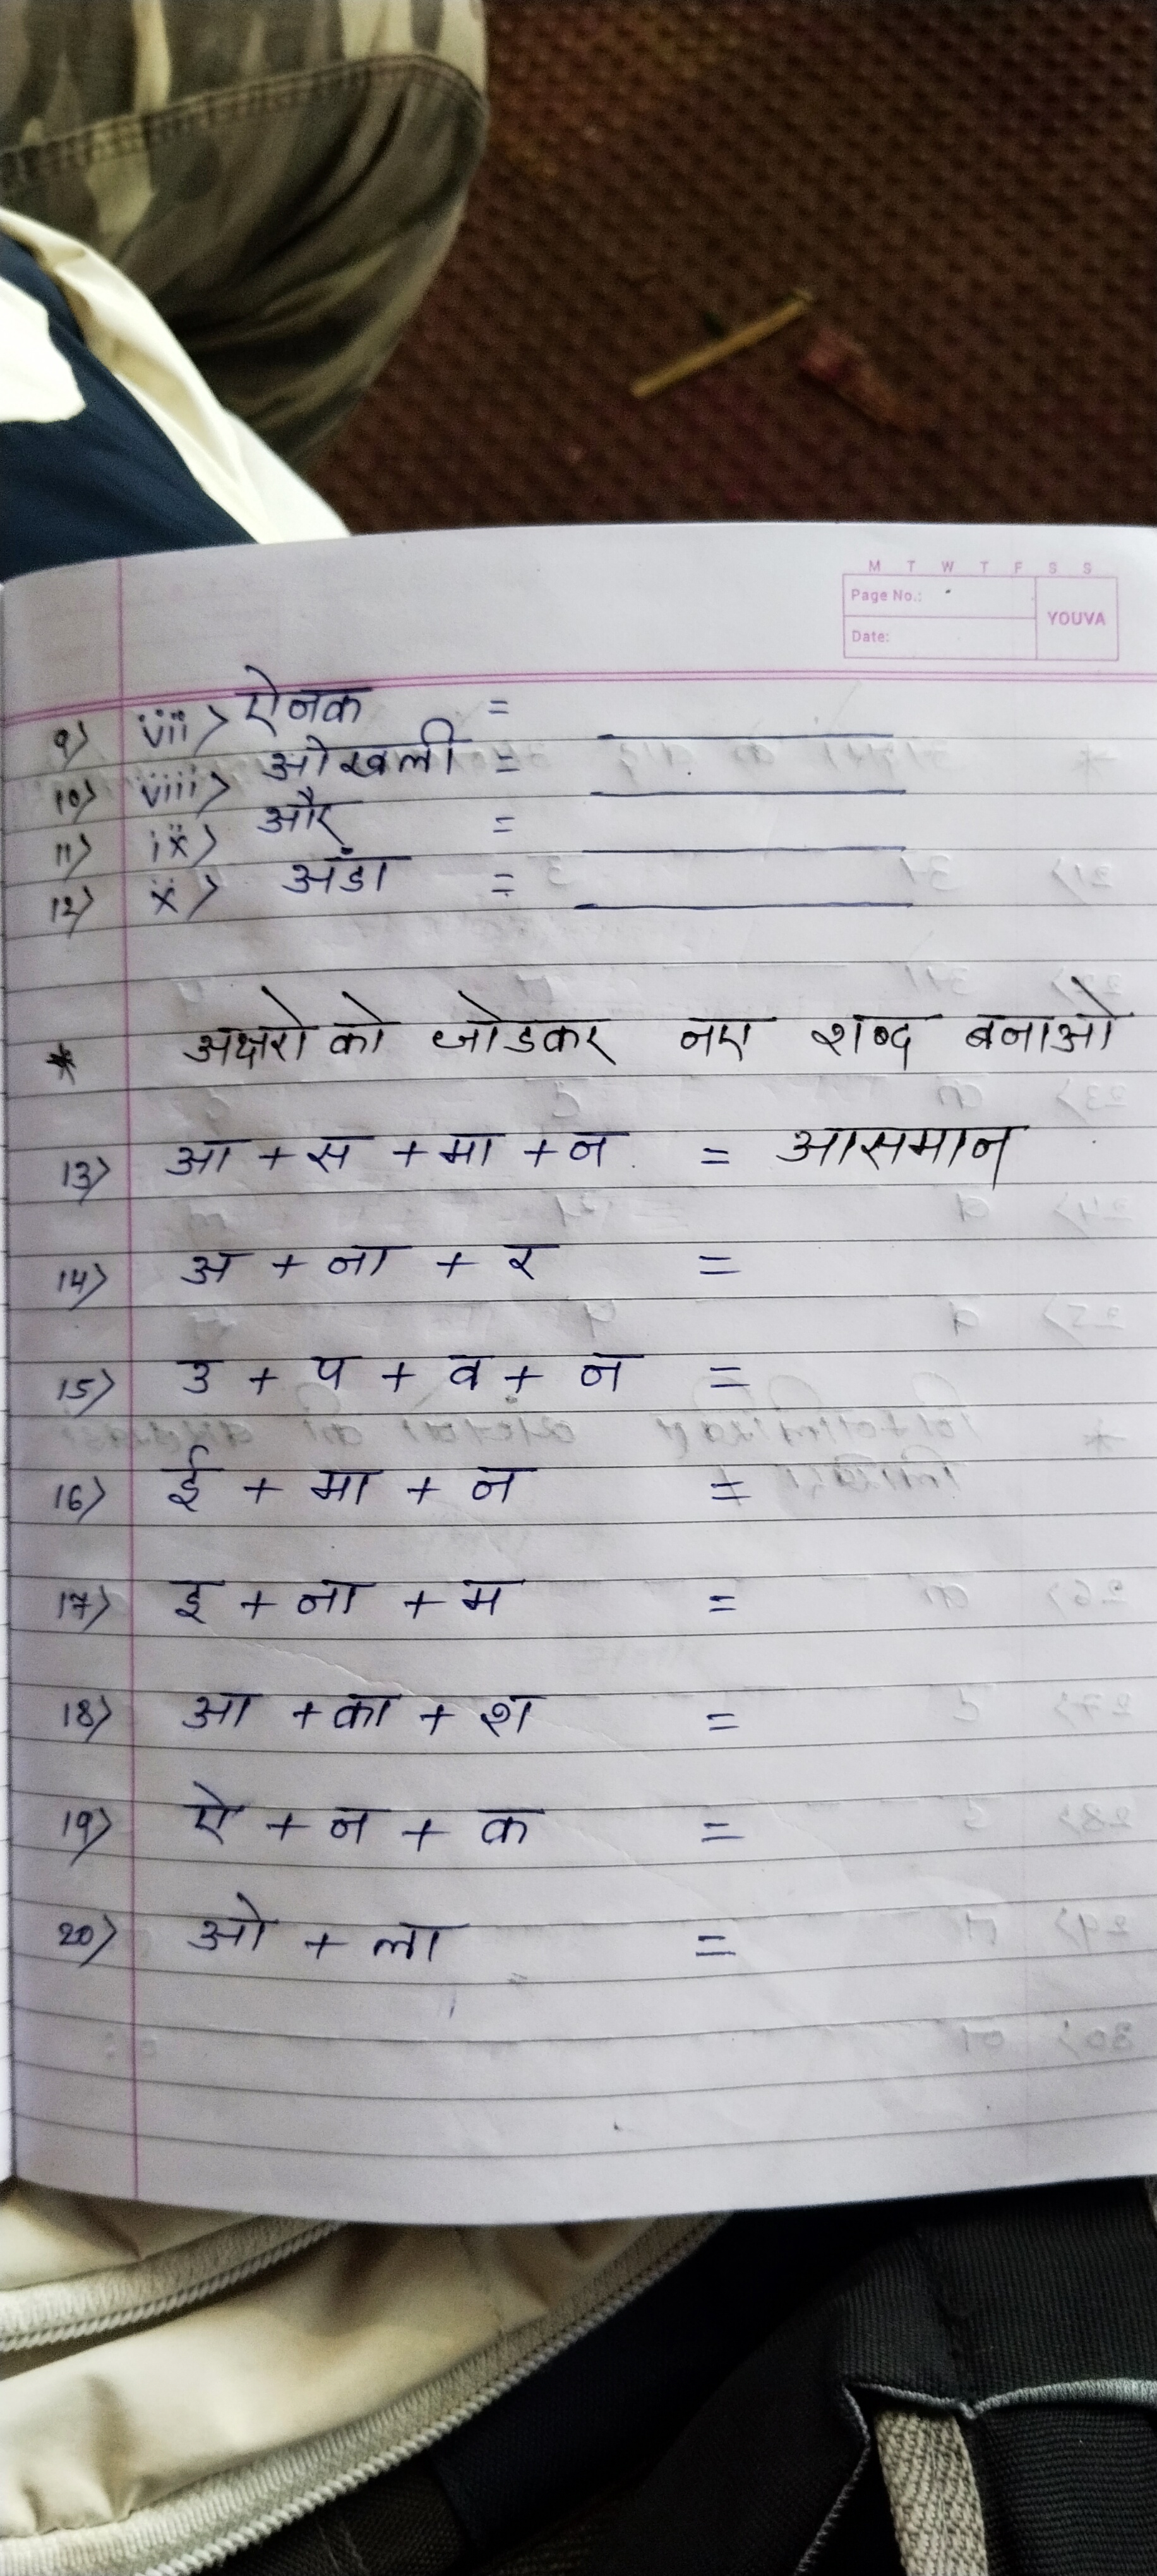 M T W T F S S
Page No.:
YOUVA
Date:
9) vii) ऐनक =
10) viii) ओखली =
11) ix) और =
12) x) अंडा =
* अक्षरो को जोडकर नए शब्द बनाओ
13) आ + स + मा + न = आसमान
14) अ + ना + र =
15) उ + प + व + न =
16) ई + मा + न =
17) इ + ना + म =
18) आ + का + श =
19) ऐ + न + क =
20) ओ + ला =